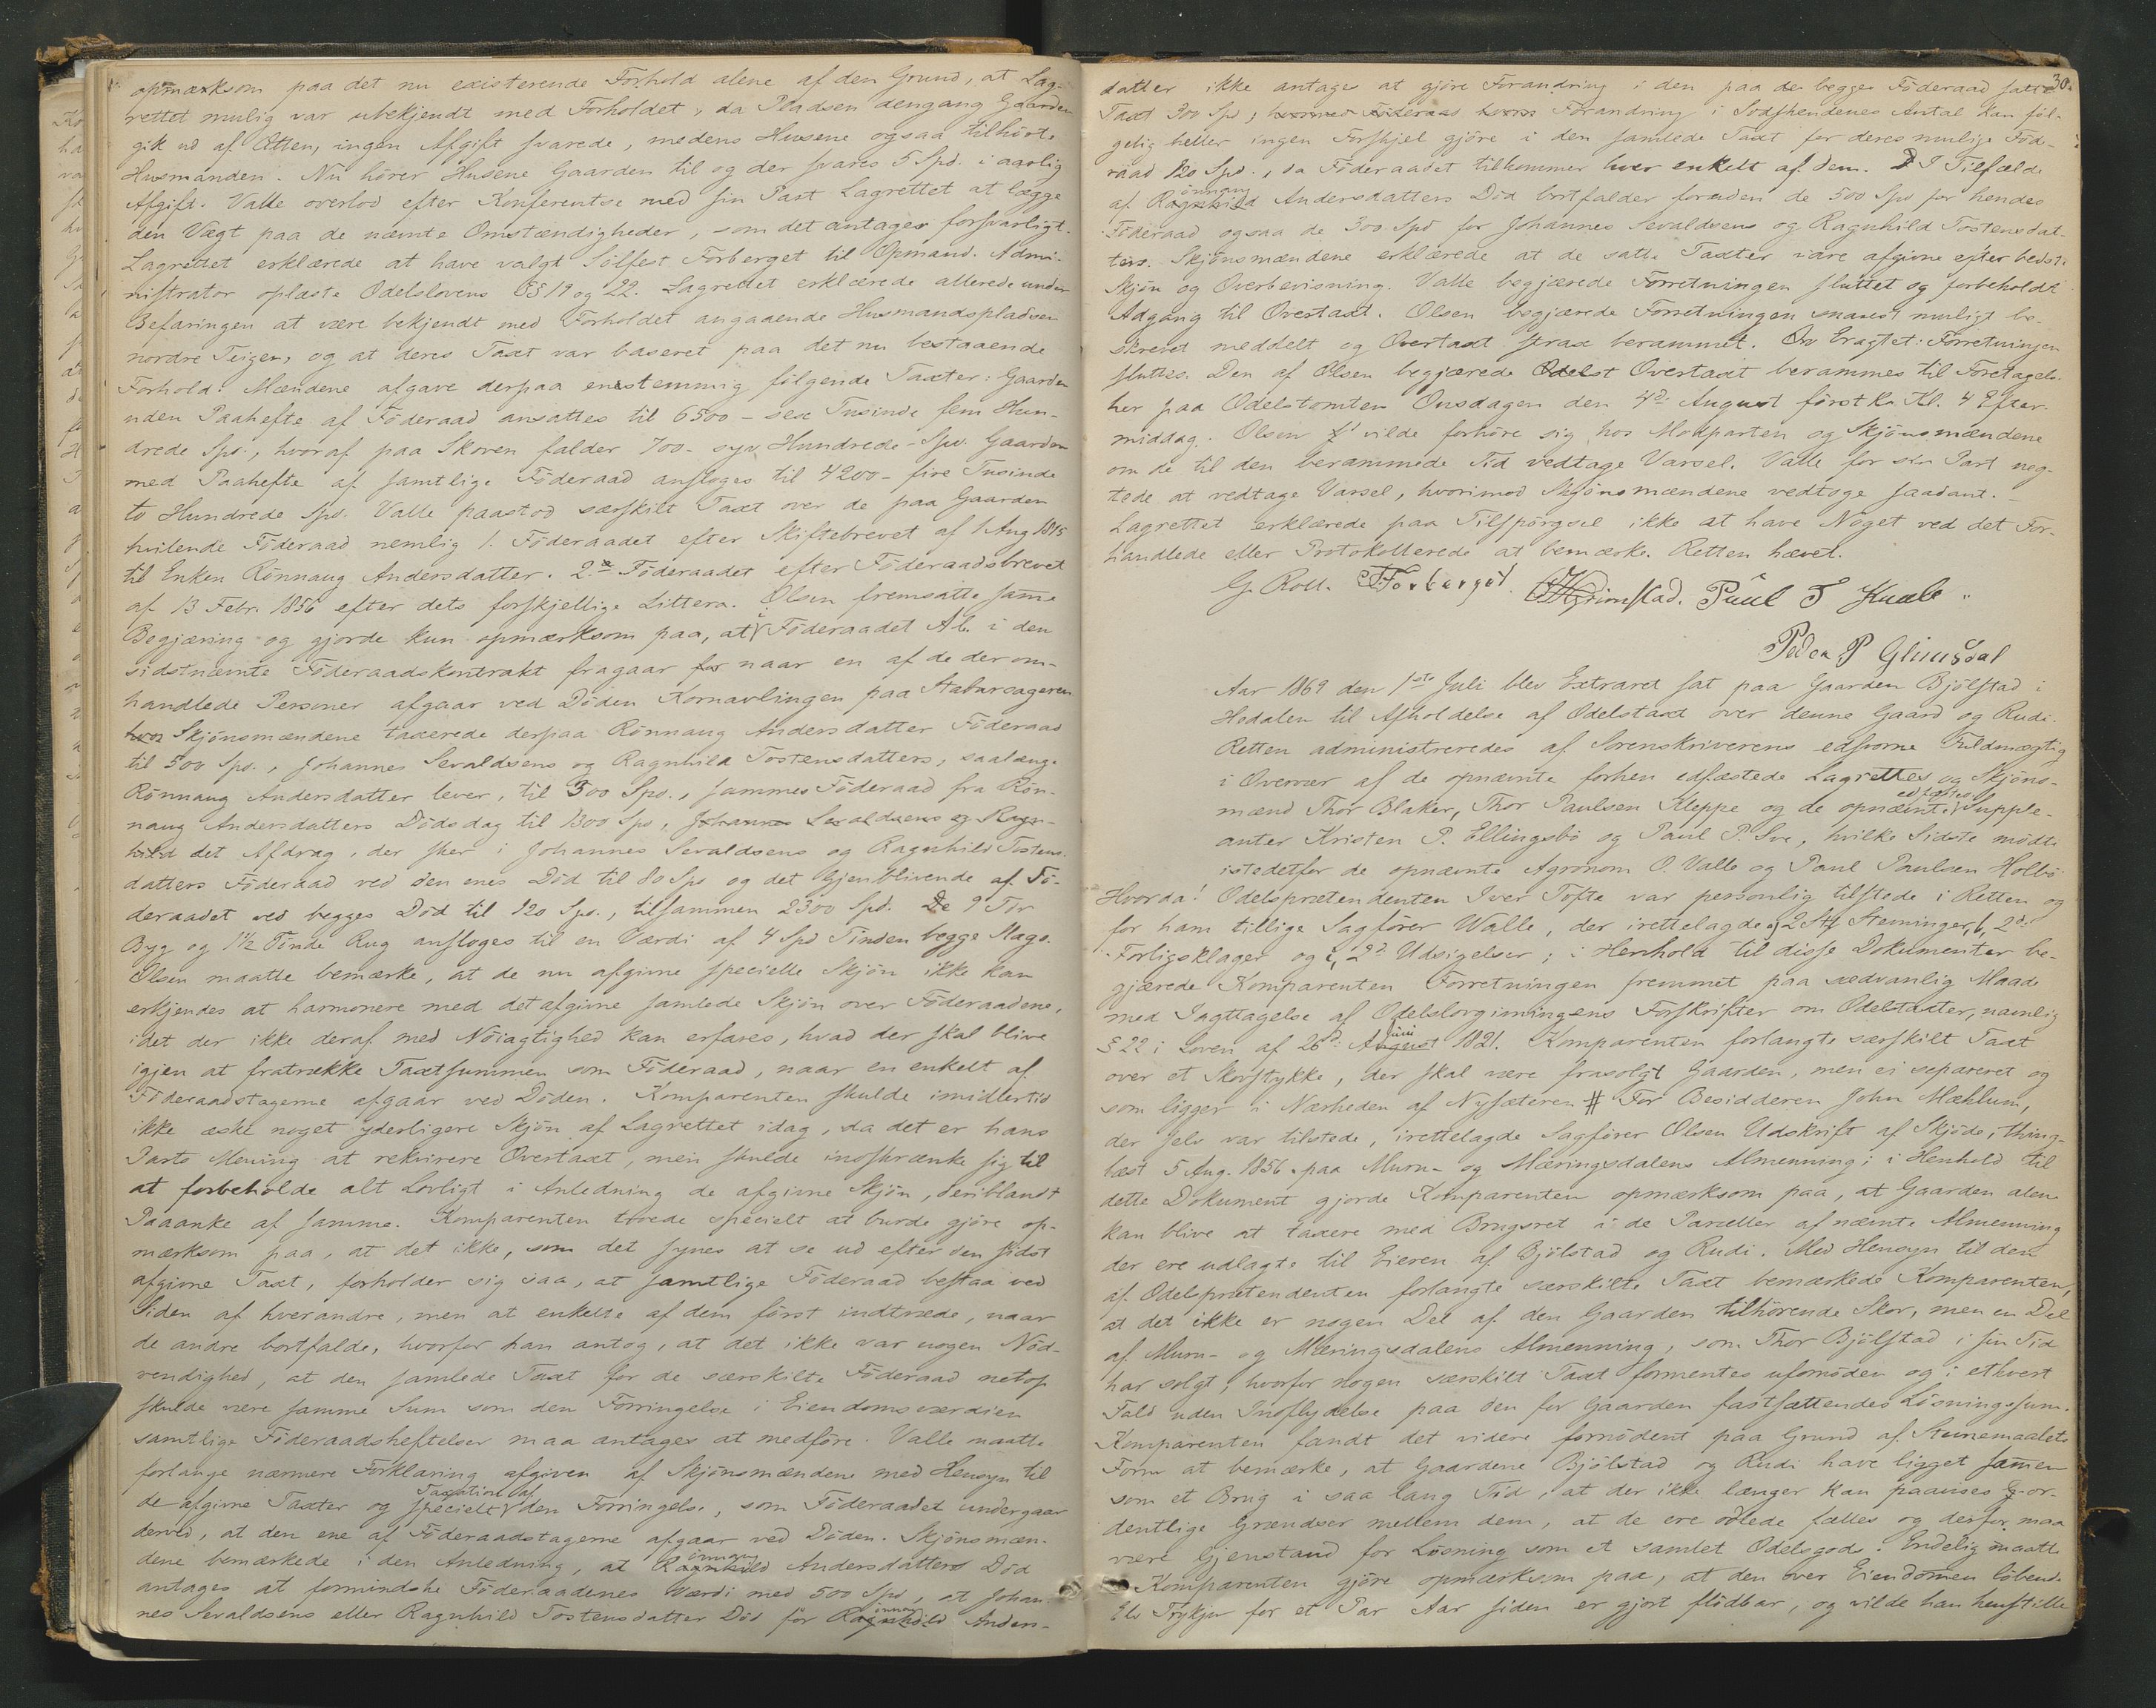 opmærksom paa det nu existerende Forhold alene af den Grund, at Lag-
rettet mulig var ubekjendt med Forholdet, da Pladsen dengang Gaarden
gik ud af Ætten, ingen Afgift svarede, medens Husene ogsaa tilhörte
Husmanden. Nu hörer Husene Gaarden til og der svares 5 Spd. i aarlig
Afgift. Valle overlod efter Konferentse med sin Part Lagrettet at lægge
den Vægt paa de nævnte Omstændigheder, som det antager forsvarligt.
Lagrettet erklærede at have valgt Sölfest Forberget til Opmand. Admi-
nistrator oplæste Odelslovens §§ 19 og 22. Lagrettet erklærede allerede under
Befaringen at være bekjendt med Forholdet angaaende Husmandspladsen
nordre Teigen, og at deres Taxt var baseret paa det nu bestaaende
Forhold. Mændene afgave derpaa enstemmig fölgende Taxter: Gaarden
uden Paahefte af Föderaad ansattes til 6500 - sex Tusinde fem Hun-
drede Spd., hvoraf paa Skoven falder 700 - syv Hundrede Spd. Gaarden
med Paahefte af samtlige Föderaad ansloges til 4200 - fire Tusinde
to Hundrede Spd. Valle paastod særskilt Taxt over de paa Gaarden
hvilende Föderaad nemlig 1. Föderaadet efter Skiftebrevet af 1 Aug 1815
til Enken Rönnaug Andersdatter. 2. Föderaadet efter Föderaadsbrevet
af 13 Febr. 1856 efter dets forskjellige Littera. Olsen fremsatte samme
Begjæring og gjorde kun opmærksom paa, at i Föderaadet A b. i den
sidstnævnte Föderaadskontrakt fragaar for naar en af de der om-
handlede Personer afgaar ved Döden Kornavlingen paa Staburageren
hvor Skjönsmændene taxerede derpaa Rönnaug Andersdatter Föderaad
til 500 Spd., Johannes Sevaldsens og Ragnhild Tostensdatters, saalænge
Rönnaug Andersdatter lever, til 300 Spd., sammes Föderaad fra Rön-
naug Andersdatters Dödsdag til 1300 Spd, Johannes Sevaldsens og Ragn-
hild det Afdrag, der sker i Johannes Sevaldsens og Ragnhild Tostens-
datters Föderaad ved den enes Död til 80 Spd og det gjenblivende af Fö-
deraadet ved begges Död til 120 Spd., tilsammen 2300 Spd. De 9 Tdr
Byg og 1½ Tönde Rug ansloges til en Værdi af 4 Spd Tönden begge Slags.
Olsen maatte bemærke, at de nu afgivne specielle Skjön ikke kan
erkjendes at harmonere med det afgivne samlede Skjön over Föderaadene,
idet der ikke deraf med Nöiagtighed kan erfares, hvad der skal blive
igjen at fratrække Taxtsummen som Föderaad, naar en enkelt af
Föderaadstagerne afgaar ved Döden. Komparenten skulde imidlertid
ikke æske noget yderligere Skjön af Lagrettet idag, da det er hans
Parts Mening at rekvirere Overtaxt, men skulde indskrænke sig til
at forbeholde alt Lovligt i Anledning de afgivne Skjön, deriblandt
Paaanke af samme. Komparenten troede specielt at burde gjöre op-
mærksom paa, at det ikke, som det synes at se ud efter den sidst
afgivne Taxt, forholder sig saa, at samtlige Föderaad bestaa ved
Siden af hverandre, men at enkelte af dem först indtræde, naar
de andre bortfalde, hvorfor han antog, at det ikke var nogen Nöd-
vendighed, at den samlede Taxt for de særskilte Föderaad netop
skulde være samme Sum som den Forringelse i Eiendomsværdien
samtlige Föderaadsheftelser maa antages at medföre. Valle maatte
forlange nærmere Forklaring afgiven af Skjönsmændene med Hensyn til
de afgivne Taxter og specielt Taxation af den Forringelse, som Föderaadet undergaar
derved, at den ene af Föderaadstagerne afgaar ved Döden. Skjönsmæn-
dene bemærkede i den Anledning, at Rönnaug Andersdatters Död
antages at formindske Föderaadenes Værdi med 500 Spd, at Johan-
nes Sevaldsens eller Ragnhild Tostensdatter Död för Rönnaug Anders-
30.
datter ikke antages at gjöre Forandring i den paa de begges Föderaad satte
Taxt 300 Spd; hvormed Föderaad hvors Forandring i Sodskendenes Antal kan föl-
gelig heller ingen Forskjel gjöre i den samlede Taxt for deres mulige Föd-
raad 120 Spd., da Föderaadet tilkommer hver enkelt af dem. I Tilfælde
af Rönnaug Andersdatters Död bortfalder foruden de 500 Spd for hendes
Föderaad ogsaa de 300 Spd for Johannes Sevaldsens og Ragnhild Tostensdat-
ters. Skjönsmændene erklærede at de satte Taxter vare afgivne efter bedste
Skjön og Overbevisning. Valle begjærede Forretningen sluttet og forbeholdt
Adgang til Overtaxt. Olsen begjærede Forretningen snarest muligt be-
skrevet meddelt og Overtaxt strax berammet. Ov Eragtet: Forretningen
sluttes. Den af Olsen begjærede Odelst Overtaxt berammes til Foretagelse
her paa Odelstomten Onsdagen den 4de August förstk. Kl. 4 Efter-
middag. Olsen vilde forhöre sig hos Modparten og Skjönsmændene
om de til den berammede Tid vedtage Varsel. Valle for sin Part neg-
tede at vedtage Varsel, hvorimod Skjönsmændene vedtoge saadant. -
Lagrettet erklærede paa Tilspörgsel ikke at have Noget ved det For-
handlede eller Protokollerede at bemærke. Retten hævet.
G. Roll. S Forberget. Grimstad. Paul T Kvale.
Peder P Glimsdal
Aar 1869 den 1ste Juli blev Extraret sat paa Gaarden Bjölstad i
Hedalen til Afholdelse af Odelstaxt over denne Gaard og Rudi.
Retten administreredes af Sorenskriverens edsvorne Fuldmægtig
i Overvær af de opnævnte forhen edfæstede Lagrettes og Skjöns-
mænd Thor Blaker, Thor Paulsen Kleppe og de opnævnte edfæstede Supple-
anter Kristen P. Ellingsbö og Paul P Sve, hvilke Sidste mödte
istedetfor de opnævnte Agronom O. Valle og Paul Paulsen Holbö
Hvorda! Odelsprætendenten Iver Tofte var personlig tilstede i Retten og
for ham tillige Sagförer Walle, der irettelagde a, 2 Stk Stevninger, b, 2de
Forligsklager og c, 2de Udsigelser; i Henhold til disse Dokumenter be-
gjærede Komparenten Forretningen fremmet paa sædvanlig Maade
med Iagttagelse af Odelslovgivningens Forskrifter om Odelstaxter, navnlig
§ 22 i Loven af 26de Juni 1821. Komparenten forlangte særskilt Taxt
over et Skovstykke, der skal være frasolgt Gaarden, men ei separeret og
som ligger i Nærheden af Nysæteren # For Besidderen John Mæhlum,
der selv var tilstede, irettelagde Sagförer Olsen Udskrift af Skjöde, thing-
læst 5 Aug. 1856. paa Muru- og Mæringsdalens Almenning; i Henhold til
dette Dokument gjorde Komparenten opmærksom paa, at Gaarden alene
kan blive at taxere med Brugsret i de Parceller af nævnte Almenning
der ere udlagte til Eieren af Bjölstad og Rudi. Med Hensyn til den
af Odelsprætendenten forlangte særskilte Taxt bemærkede Komparenten,
at det ikke er nogen Del af den Gaarden tilhörende Skov, men en Del
af Muru- og Mæringsdalens Almenning, som Thor Bjölstad i sin Tid
har solgt, hvorfor nogen særskilt Taxt formentes ufornöden og i ethvert
Fald uden Indflydelse paa den for Gaarden fastsættendes Lösningssum.
Komparenten fandt det videre fornödent paa Grund af Stevnemaalets
Form at bemærke, at Gaardene Bjölstad og Rudi have ligget sammen
som et Brug i saa lang Tid, at der ikke længer kan paavises or-
dentlige Grændser mellem dem, at de ere odlede fælles og derfor maa
være Gjenstand for Lösning som et samlet Odelsgods. Endelig maatte
Komparenten gjöre opmærksom paa, at den over Eiendommen löbende
Elv Trykjen for et Par Aar siden er gjort flödbar, og vilde han henstille